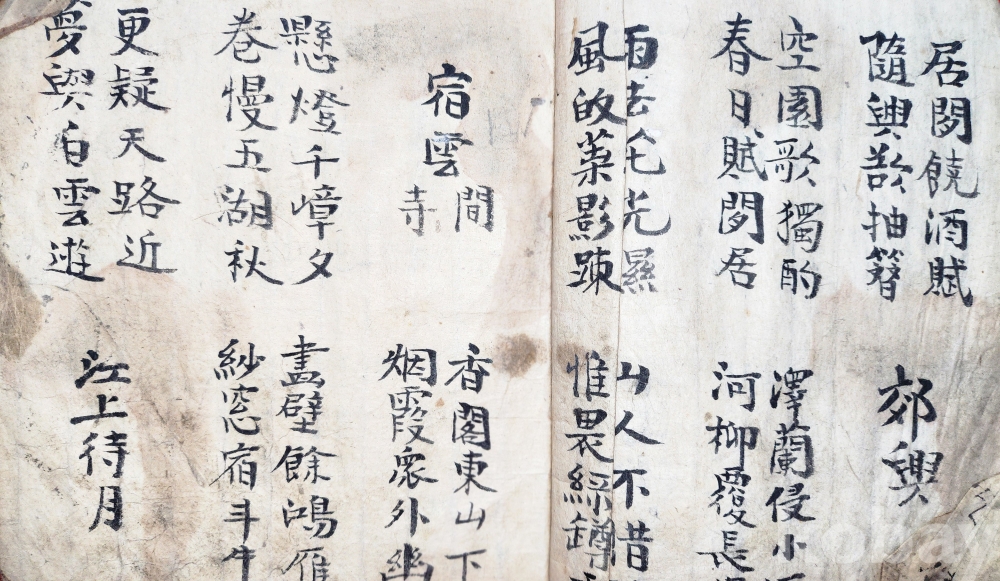 居閑饒酒賦
隨興欲抽簪
郊興
空園歌獨酌
春日賦閑居
澤蘭侵小
河柳覆長
雨去花光濕
風皈葉影踈
山人不昔
惟畏綠鐏
宿雲間寺
香閣東山下
烟霞象外幽
懸燈千嶂夕
卷慢五湖秋
畫壁餘鴻雁
紗窓宿斗牛
更疑天路近
夢與白雲遊
江上待月